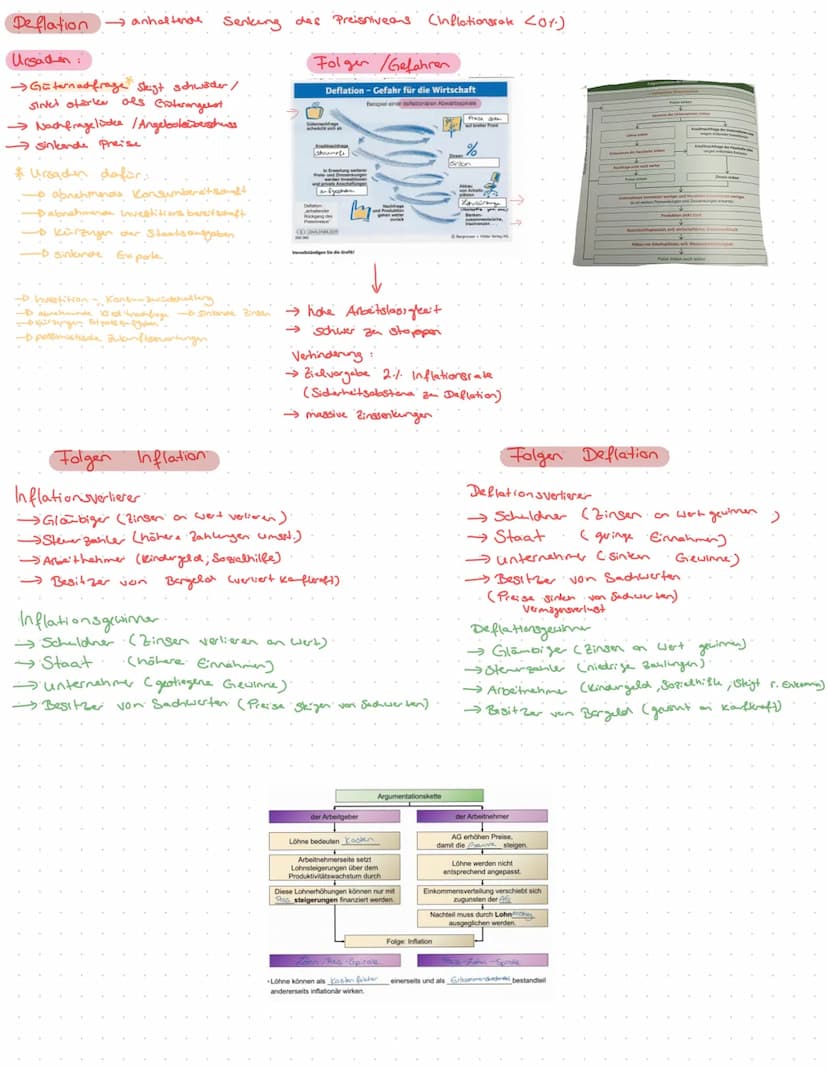 Deflation → anhaltende Senkung des Preisniveaus (Inflationsrate <0%)
Ursachen:
→ Güternachfrage* steigt schwächer /
sinkt stärker als Güterangebot
→ Nachfragelücke / Angebotsüberschuss
→ sinkende Preise
* Ursachen dafür:
→ abnehmende Konsumbereitschaft
→ abnehmende Investitionsbereitschaft
→ Kürzungen der Staatsausgaben
→ sinkende Exporte
→ Investition - Konsumzurückhaltung
→ abnehmende Kreditnachfrage → sinkende Zinsen
→ Kürzungen Staatsausgaben
→ pessimistische Zukunftserwartungen
Folgen / Gefahren
Deflation – Gefahr für die Wirtschaft
Beispiel einer deflationären Abwärtsspirale
Güternachfrage
schwächt sich ab
Preise sinken
auf breiter Front
Kreditnachfrage
schrumpft
Zinsen
sinken
In Erwartung weiterer
Preis- und Zinssenkungen
werden Investitionen
und private Anschaffungen
aufgeschoben
Abbau
von Arbeits-
plätzen
Nachfrage
und Produktion
gehen weiter
zurück
Banken-
zusammenbrüche,
Deflation:
„anhaltender
Rückgang des
Preisniveaus"
© Bergmoser + Höller Verlag AG
Vervollständigen Sie die Grafik!
Preise sinken
Löhne sinken
Zinsen sinken
Produktion sinkt
Preise sinken noch weiter
→ hohe Arbeitslosigkeit
→ schwer zu stoppen
Verhinderung:
→ Zielvorgabe 2% Inflationsrate
(Sicherheitsabstand zu Deflation)
→ massive Zinssenkungen
Folgen Inflation
Inflationsverlierer
→ Gläubiger (Zinsen an Wert verlieren)
→ Steuerzahler (höhere Zahlungen umsst.)
→ Arbeitnehmer (Kindergeld, Sozialhilfe)
→ Besitzer von Bargeld (verliert Kaufkraft)
Inflationsgewinner
→ Schuldner (Zinsen verlieren an Wert)
→ Staat (höhere Einnahmen)
→ Unternehmer (gestiegene Gewinne)
→ Besitzer von Sachwerten (Preise steigen von Sachwerten)
Folgen Deflation
Deflationsverlierer
→ Schuldner (Zinsen an Wert gewinnen)
→ Staat (geringe Einnahmen)
→ Unternehmer (sinken Gewinne)
→ Besitzer von Sachwerten
(Preise sinken von Sachwerten)
Vermögensverlust
Deflationsgewinner
→ Gläubiger (Zinsen an Wert gewinnen)
→ Steuerzahler (niedrige Zahlungen)
→ Arbeitnehmer (Kindergeld, Sozialhilfe, steigt r. Einkommen)
→ Besitzer von Bargeld (gewinnt an Kaufkraft)
Argumentationskette
der Arbeitgeber
Löhne bedeuten Kosten
Arbeitnehmerseite setzt
Lohnsteigerungen über dem
Produktivitätswachstum durch
Diese Lohnerhöhungen können nur mit
Preissteigerungen finanziert werden.
der Arbeitnehmer
AG erhöhen Preise,
damit die Gewinne steigen.
Löhne werden nicht
entsprechend angepasst.
Einkommensverteilung verschiebt sich
zugunsten der AG
Nachteil muss durch Lohnerhöhg
ausgeglichen werden.
Folge: Inflation
Lohn-Preis-Spirale
Preis-Lohn-Spirale
• Löhne können als Kostenfaktor einerseits und als Einkommensbestandteil bestandteil
andererseits inflationär wirken.